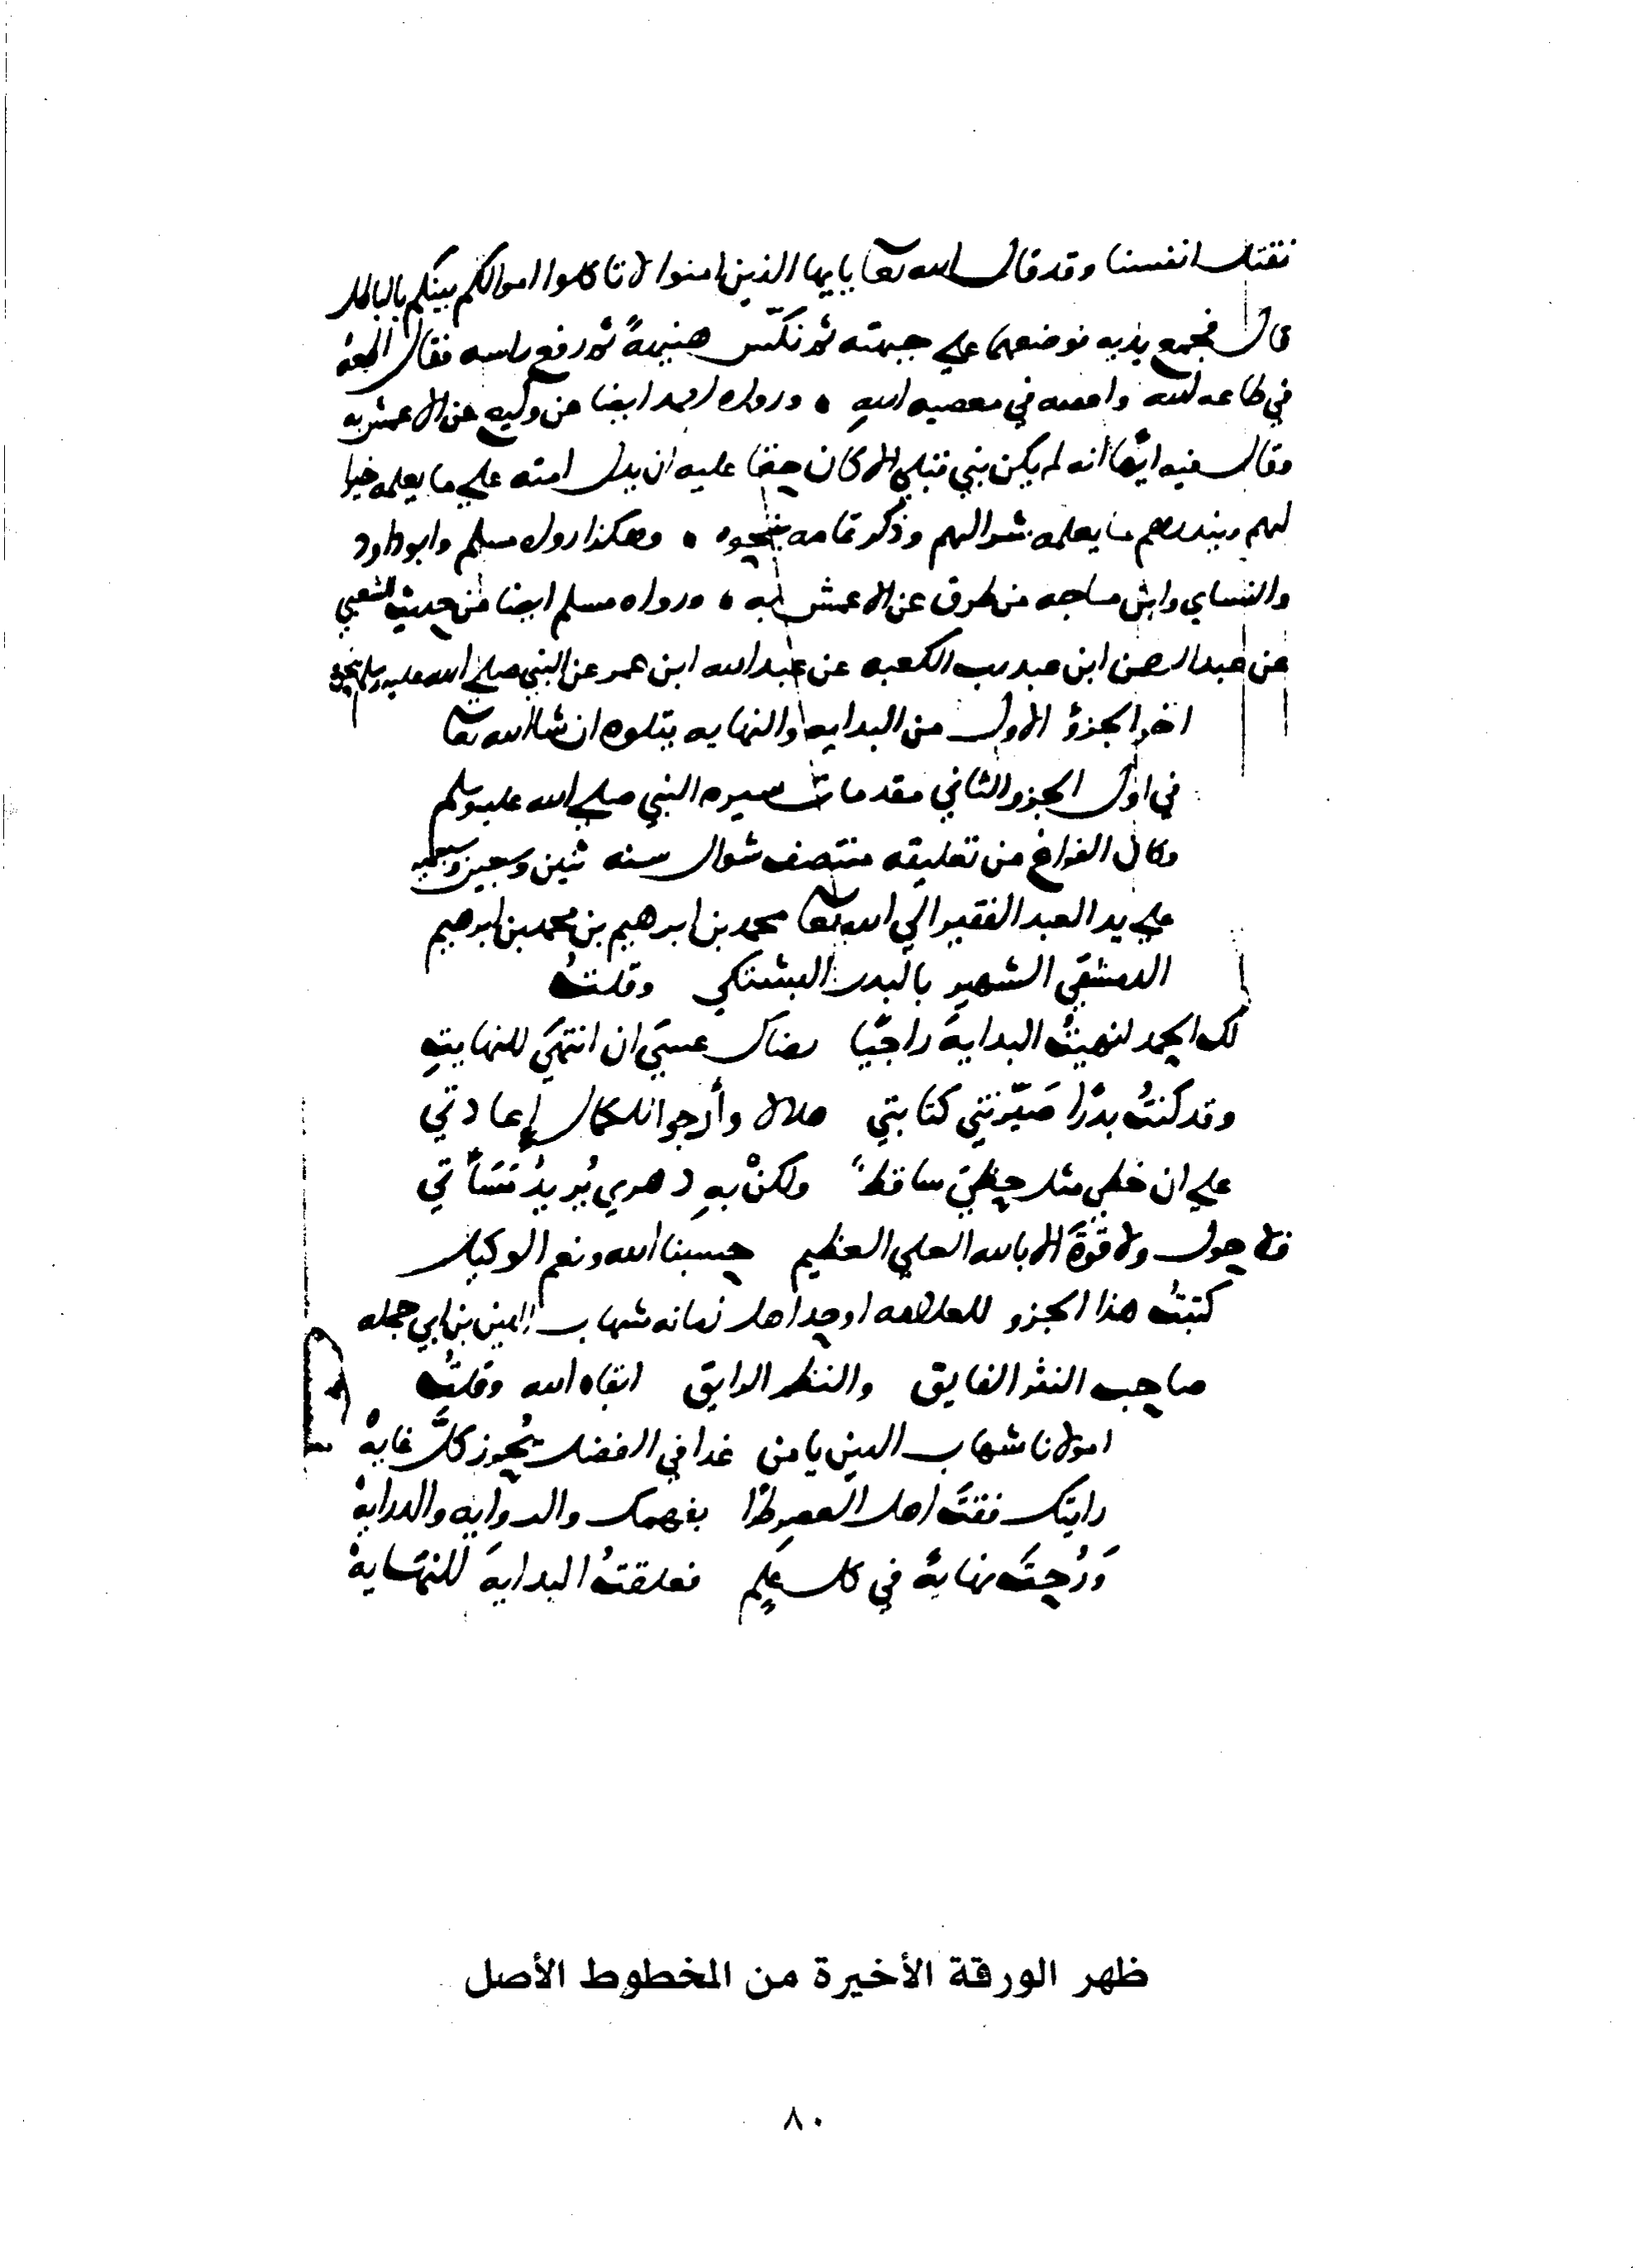 نقتل انفسنا وقد قال الله تعا يايها الذين امنوا لا تاكلوا اموالكم بينكم بالباطل
قال فجمع يديه فوضعهما علي جبهته ثم نكّس هنيهةً ثم رفع راسه فقال اطعه
في طاعه الله واعصه في معصيه اللهِ ٠ ورواه احمد ايضا عن وكيع عن الاعمش به
وقال فيه ايُّها انه لم يكن نبي قبلي الا كان حقا عليه ان يدل امته علي ما يعلمه خيرا
لهم وينذرهم ما يعلمه شرا لهم وذكر تمامه بنحوه ٠ وهكذا رواه مسلم وابو داود
والنساي وابن ماجه من طرق عن الاعمش به ٠ ورواه مسلم ايضا من حديث الشعبي
عن عبد الرحمن ابن عبد رب الكعبه عن عبد الله ابن عمر عن النبي صلي الله عليه وسلم بنحوه
اخر الجزؤ الاول من البدايه والنهايه يتلوه ان شا الله تعا
في اول الجزو الثاني مقدمات سيره النبي صلي الله عليه وسلم
وكان الفراغ من تعليقه منتصف شوال سنه ثنين وسبعين وسبعميه
علي يد العبد الفقير الي الله تعا محمد بن ابرهيم بن محمد بن ابرهيم
الدمشقي الشهير بالبدر البشتكي وقلتُ
لك الحمد انهيتُ البدايةَ راجيًا رضاك عسَي ان انتهَي للنهايةِ
وقد كنتُ بدرًا صَيّرتني كتابتي هلالا وأرجوا للكمال إعادتي
علي ان خطي مثل حظيَ ساقطً ولكنْ بهِ دهري يُريدُ مَسَأَتي
فلا حول ولا قوّةَ الا بالله العلي العظيم حسبنا الله ونعم الوكيل
كتبتُ هذا الجزو للعلامه اوحد اهل زمانه شهاب الدين بن ابي حجله
صاحب النثر الفايق والنظم الرايق ابقاه الله وقلتُ
امولانا شهاب الدين يا من غدا في الفضل يَحوز كلَّ غايهْ
رايتك فقتَ اهل العصر طُرًا بفهمك والروايه والدرايهْ
وَرُحتَ نهايةً في كل علمٍ فعلقتُ البدايةَ للنهَايهْ
ظهر الورقة الأخيرة من المخطوط الأصل
٨٠